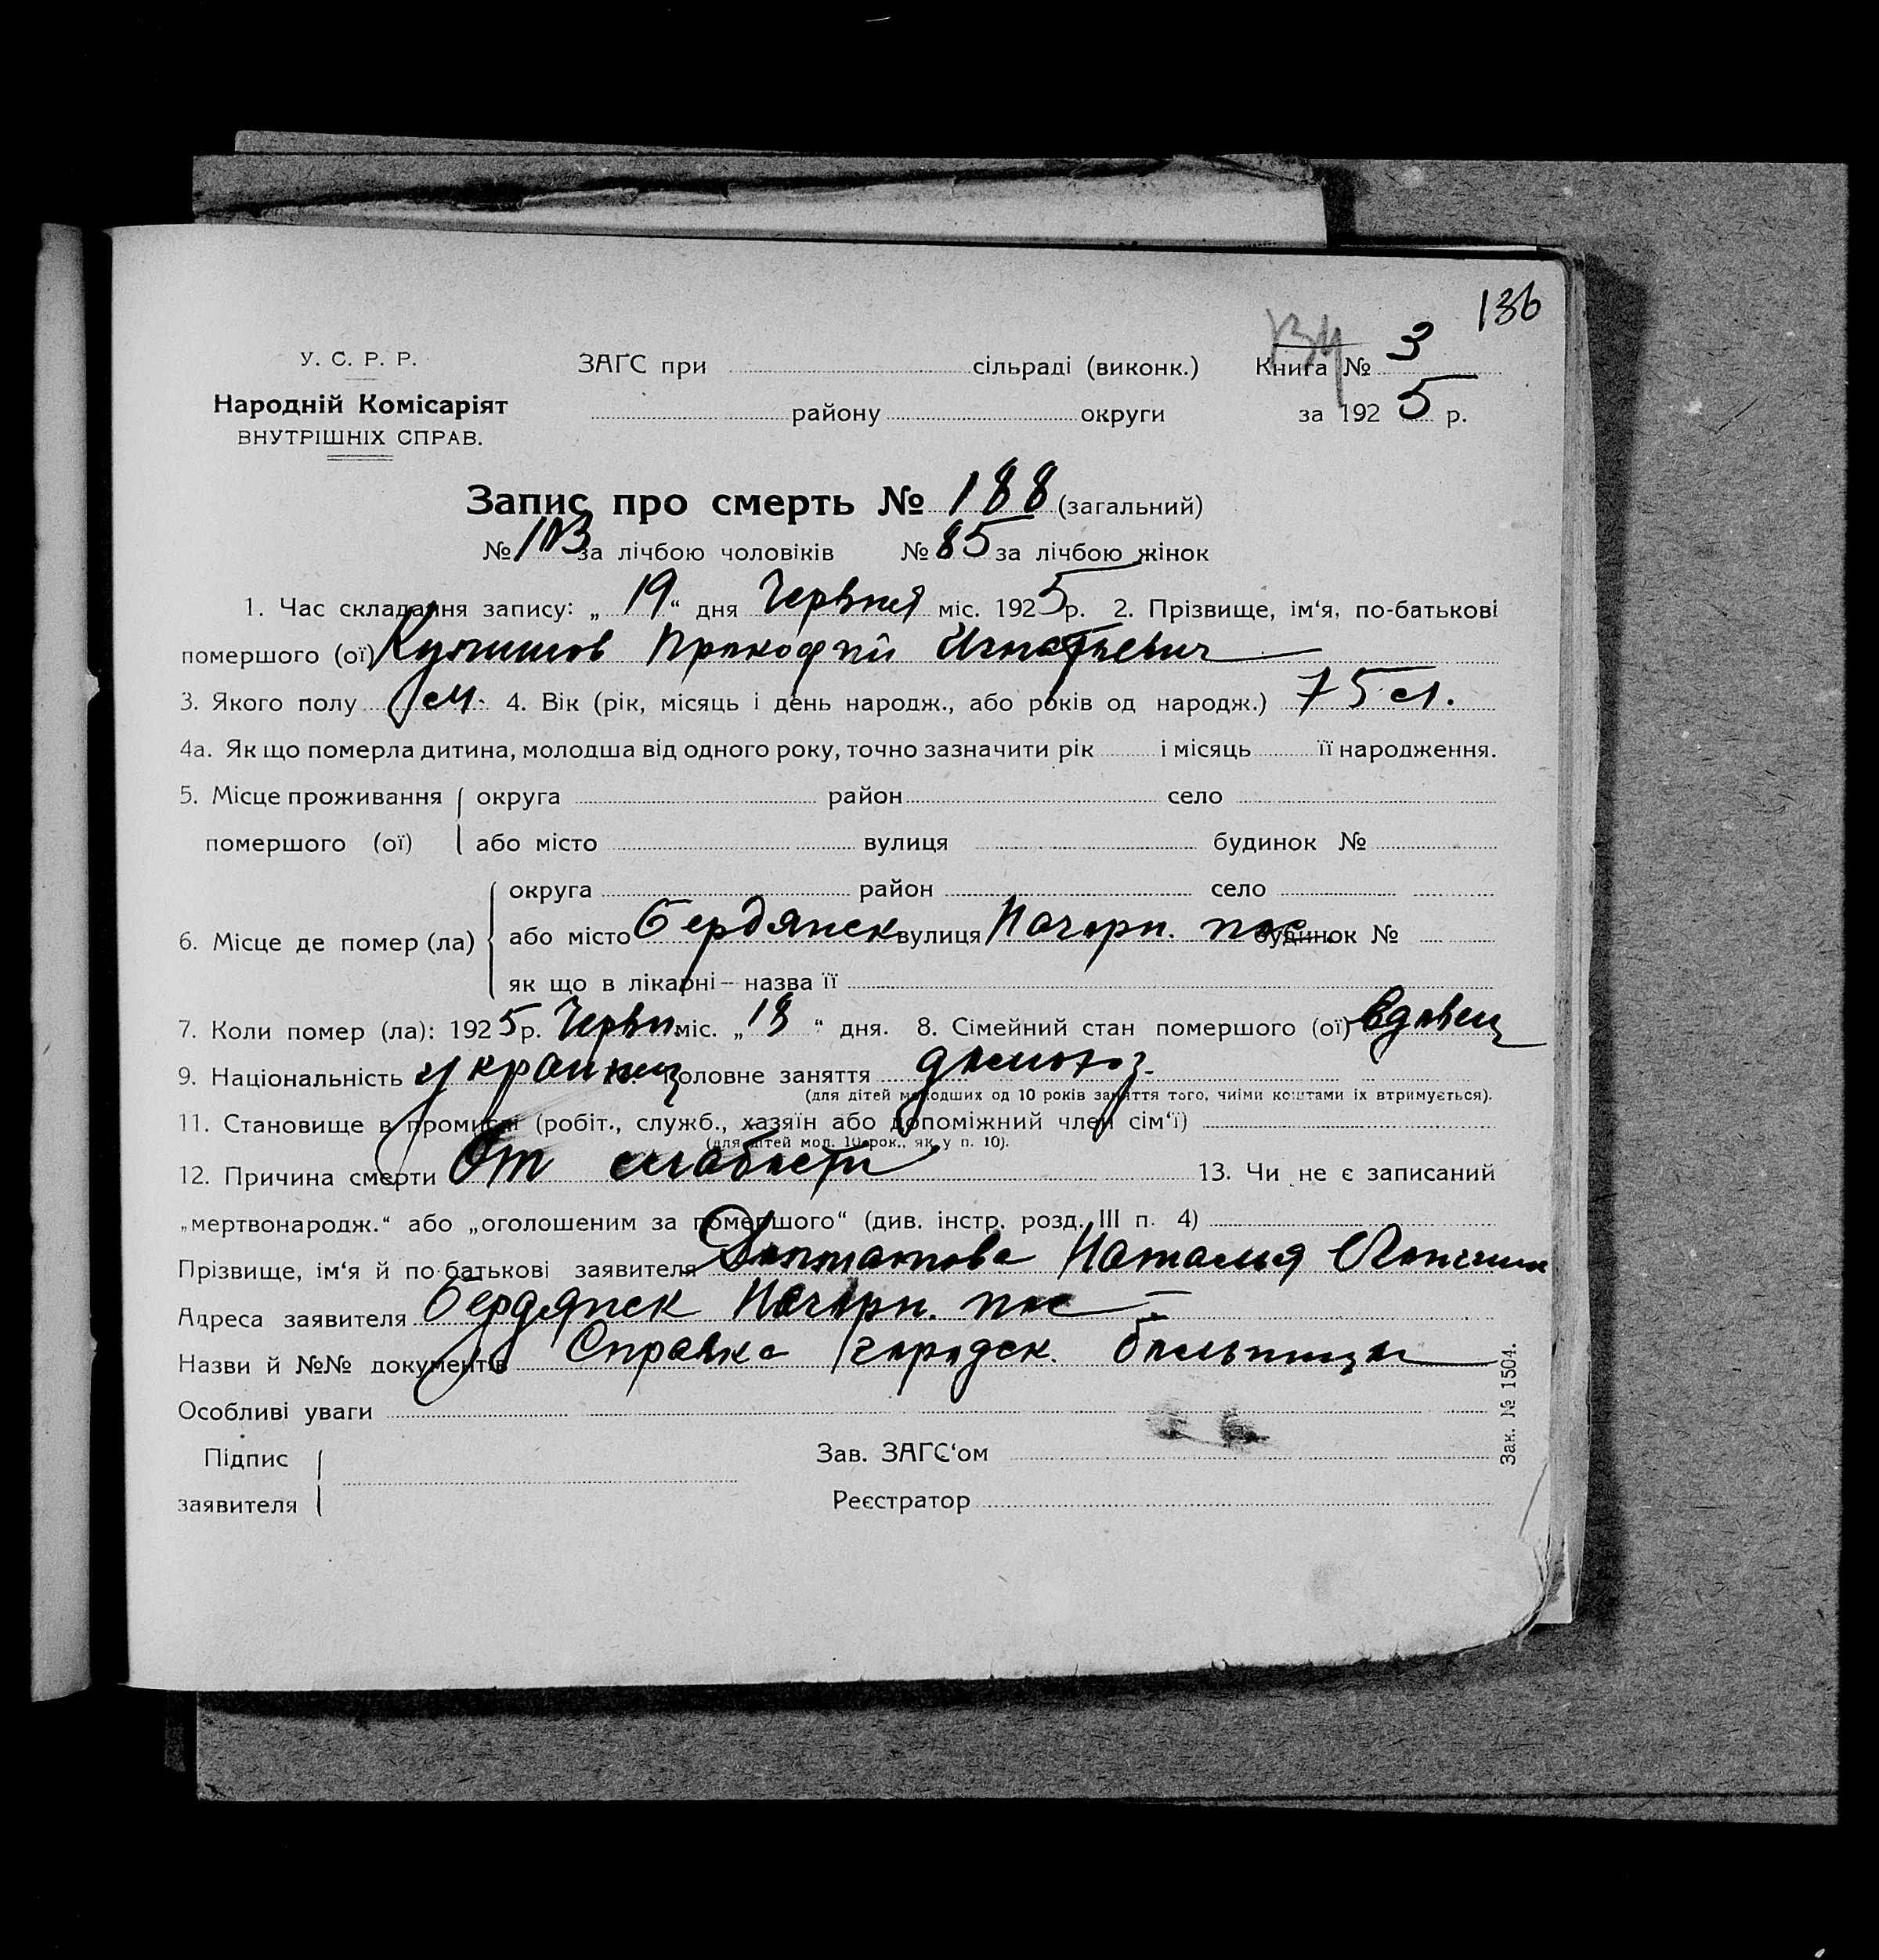 136
У. С. Р. Р. ЗАГС при сільраді (виконк.) Книга № 3
Народній Комісаріят району округи за 1925 р.
ВНУТРІШНІХ СПРАВ.
Запис про смерть № 188 (загальний)
№ 103 за лічбою чоловіків № 85 за лічбою жінок
1. Час складання запису: „19“ дня Червня міс. 1925 р. 2. Прізвище, ім‘я, по-батькові
помершого (ої) Прокофий Игнатьевич
3. Якого полу 4. Вік (рік, місяць і день народж., або років од народж.) 75 л.
4а. Як що померла дитина, молодша від одного року, точно зазначити рік і місяць її народження.
5. Місце проживання округа район село
помершого (ої) або місто вулиця будинок №
округа район село
6. Місце де помер (ла) або місто Бердянск вулиця Нагорн. пос. будинок №
як що в лікарні – назва її
7. Коли помер (ла): 1925 р. Червн. міс. „18“ дня. 8. Сімейний стан помершого (ої) вдовец
9. Національність украинец головне заняття домохоз.
(для дітей молодших од 10 років заняття того, чиїми коштами їх втримується).
11. Становище в промислі (робіт., служб., хазяїн або допоміжний член сім‘ї)
(для дітей мол. 10 рок., як у п. 10).
12. Причина смерти От слабости 13. Чи не є записаний
„мертвонародж.“ або „оголошеним за помершого“ (див. інстр. розд. III п. 4)
Прізвище, ім‘я й по-батькові заявителя Наталья
Адреса заявителя Бердянск Нагорн. пос
Назви й №№ документів Справка городск. больницы
Особливі уваги
Підпис Зав. ЗАГС‘ом
заявителя Реєстратор
Зак. № 1504.